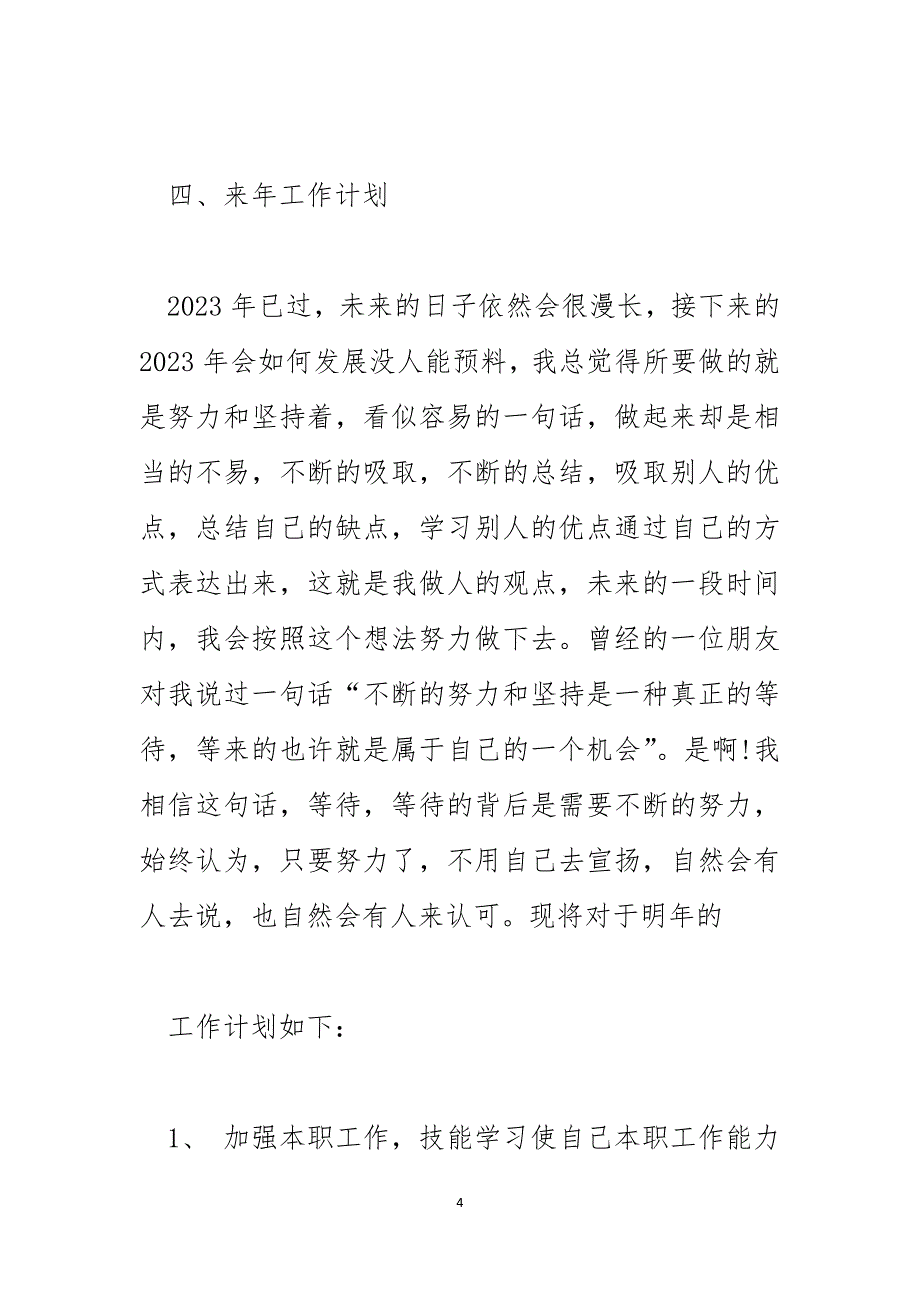 四、来年工作计划
2023 年已过，未来的日子依然会很漫长，接下来的
2023 年会如何发展没人能预料，我总觉得所要做的就
是努力和坚持着，看似容易的一句话，做起来却是相
当的不易，不断的吸取，不断的总结，吸取别人的优
点，总结自己的缺点，学习别人的优点通过自己的方
式表达出来，这就是我做人的观点，未来的一段时间
内，我会按照这个想法努力做下去。曾经的一位朋友
对我说过一句话“不断的努力和坚持是一种真正的等
待，等来的也许就是属于自己的一个机会”。是啊!我
相信这句话，等待，等待的背后是需要不断的努力，
始终认为，只要努力了，不用自己去宣扬，自然会有
人去说，也自然会有人来认可。现将对于明年的
工作计划如下：
1、 加强本职工作，技能学习使自己本职工作能力
4